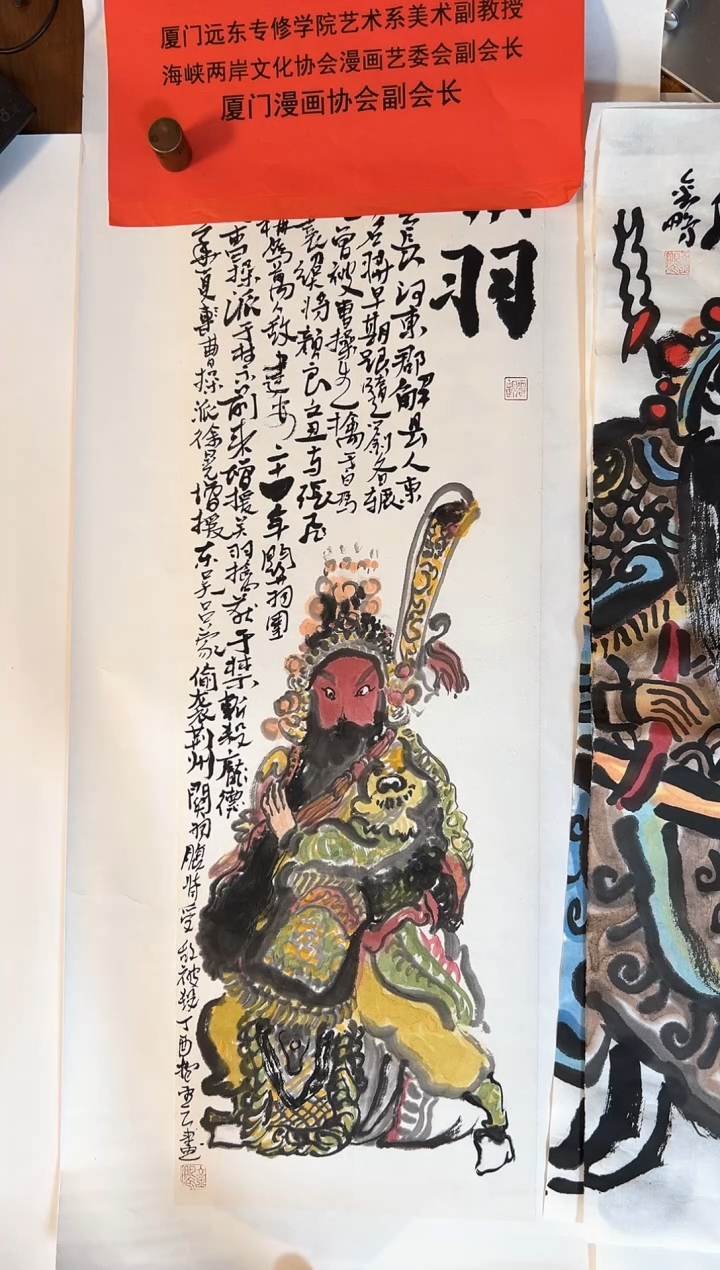 厦门远东专修学院艺术系美术副教授
海峡两岸文化协会漫画艺委会副会长
厦门漫画协会副会长
羽
云长河东郡解县人东
名将早期跟随刘备辗
曾被曹操生擒于白马
袁绍将颜良文丑与张飞
称为万人敌建安二十四年关羽围
曹操派于禁前来增援关羽擒获于禁斩杀庞德
华夏曹操派徐晃增援东吴吕蒙偷袭荆州关羽腹背受敌被杀丁酉